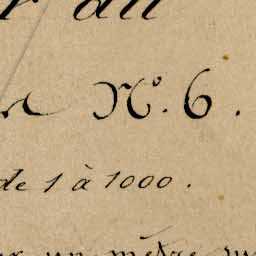 du
N°. 6.
de 1 à 1000.
un mètre